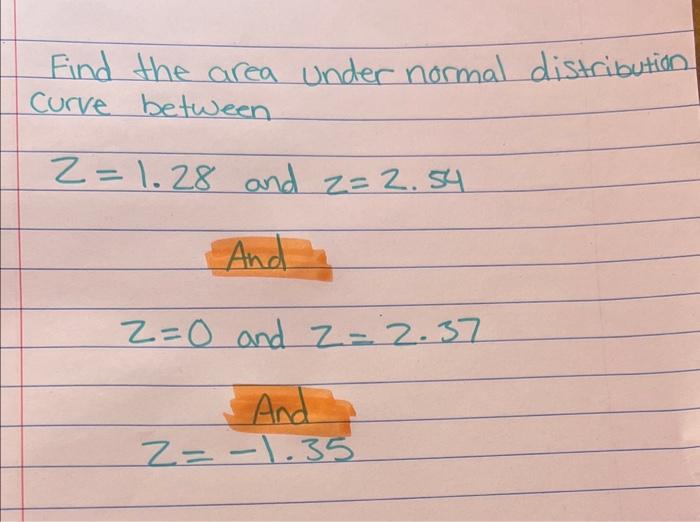 Find the area under normal distribution
curve between
Z = 1.28 and z = 2.54
And
Z=0 and Z = 2.37
And
Z = -1.35